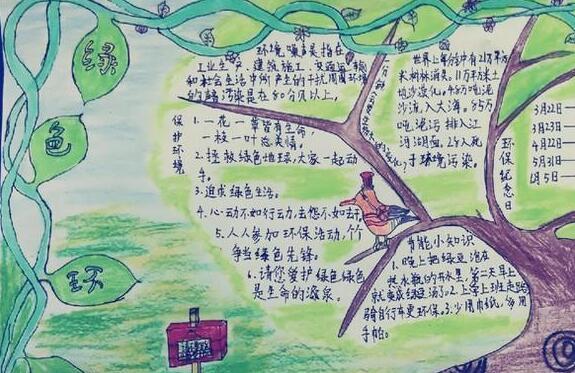 绿
色
环
环境噪声类指在
工业生产、建筑施工、交通运输
和社会生活中所产生的干扰周围环境
的
污染是在80分贝以上。
世界上每分钟有
米树林消失
地沙漠化
沙流入大海。85万
吨
污排入江
河湖
于环境污染。
保护环境
1.一花一草皆有生命,
一枝一叶总关情。
2.拯救绿色地球,大家一起动
手。
3.追求绿色生活。
4.心动不如行动力,去想不如去干
5.人人参加环保活动,个个
争当绿色先锋。
6.请您爱护绿色绿色
是生命的源泉。
节能小知识
1.晚上把绿豆泡在
热水瓶的开水里,第二天早上
就变成绿豆汤了。2.上学上班走路
骑自行车更环保。3.少用巾纸,多用
手帕。
环保纪念日
3月22日—
3月23日—
4月22日—
5月31日—
6月5日—